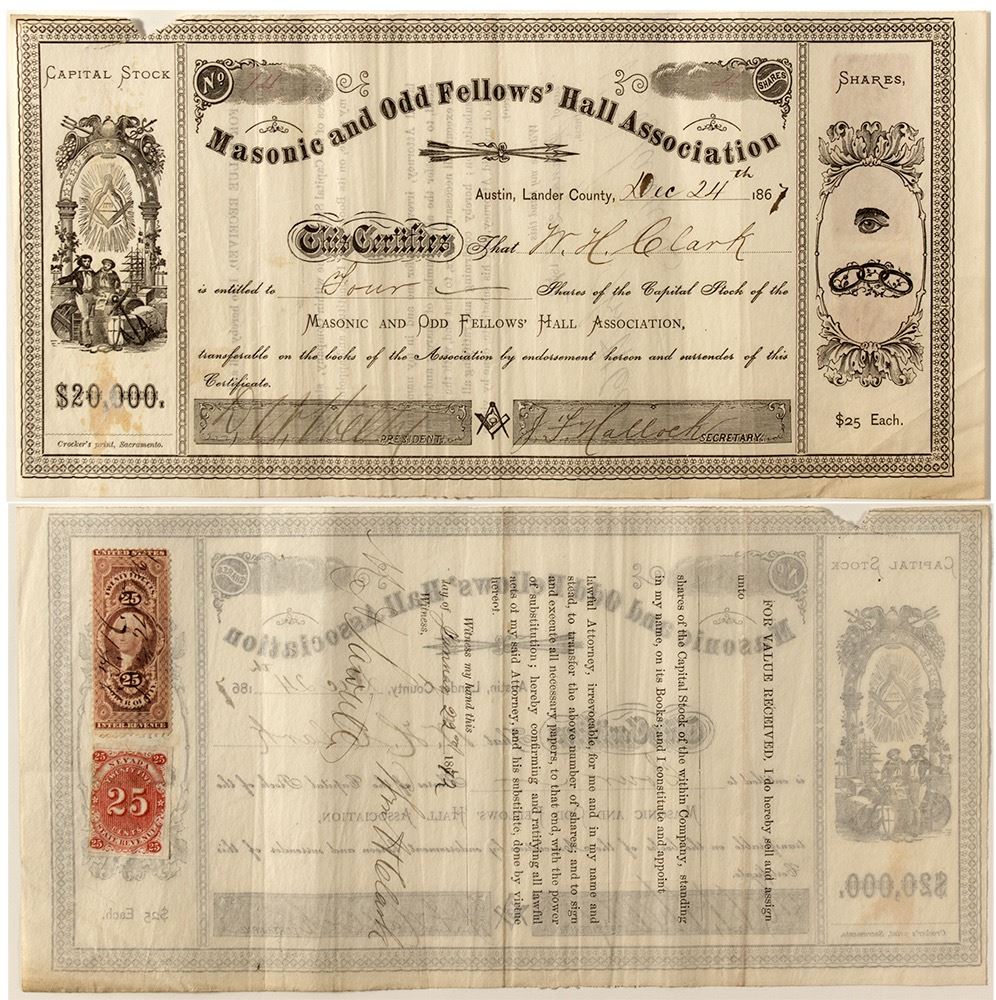 CAPITAL STOCK
$20,000.
Crocker's print, Sacramento.
No 14
SHARES
Masonic and Odd Fellows' Hall Association
Austin, Lander County, Dec 24th 1867
This Certifies That W. H. Clark
is entitled to Four Shares of the Capital Stock of the
MASONIC AND ODD FELLOWS' HALL ASSOCIATION,
transferable on the books of the Association by endorsement hereon and surrender of this
Certificate.
PRESIDENT.
J. F. Hallock SECRETARY.
SHARES,
$25 Each.
FOR VALUE RECEIVED, I do hereby sell and assign
unto
shares of the Capital Stock of the within Company, standing
in my name, on its Books; and I constitute and appoint
lawful Attorney, irrevocable, for me and in my name and
stead, to transfer the above number of shares; and to sign
and execute all necessary papers, to that end, with the power
of substitution; hereby confirming and ratifying all lawful
acts of my said Attorney, and his substitute, done by virtue
hereof.
Witness my hand this
day of 22nd 1872
Witness,
Wm H Clark
UNITED STATES
25
25
INTER REVENUE
NEVADA
25 25
TWENTY FIVE
25
CENTS
STATE REVENUE
25 25